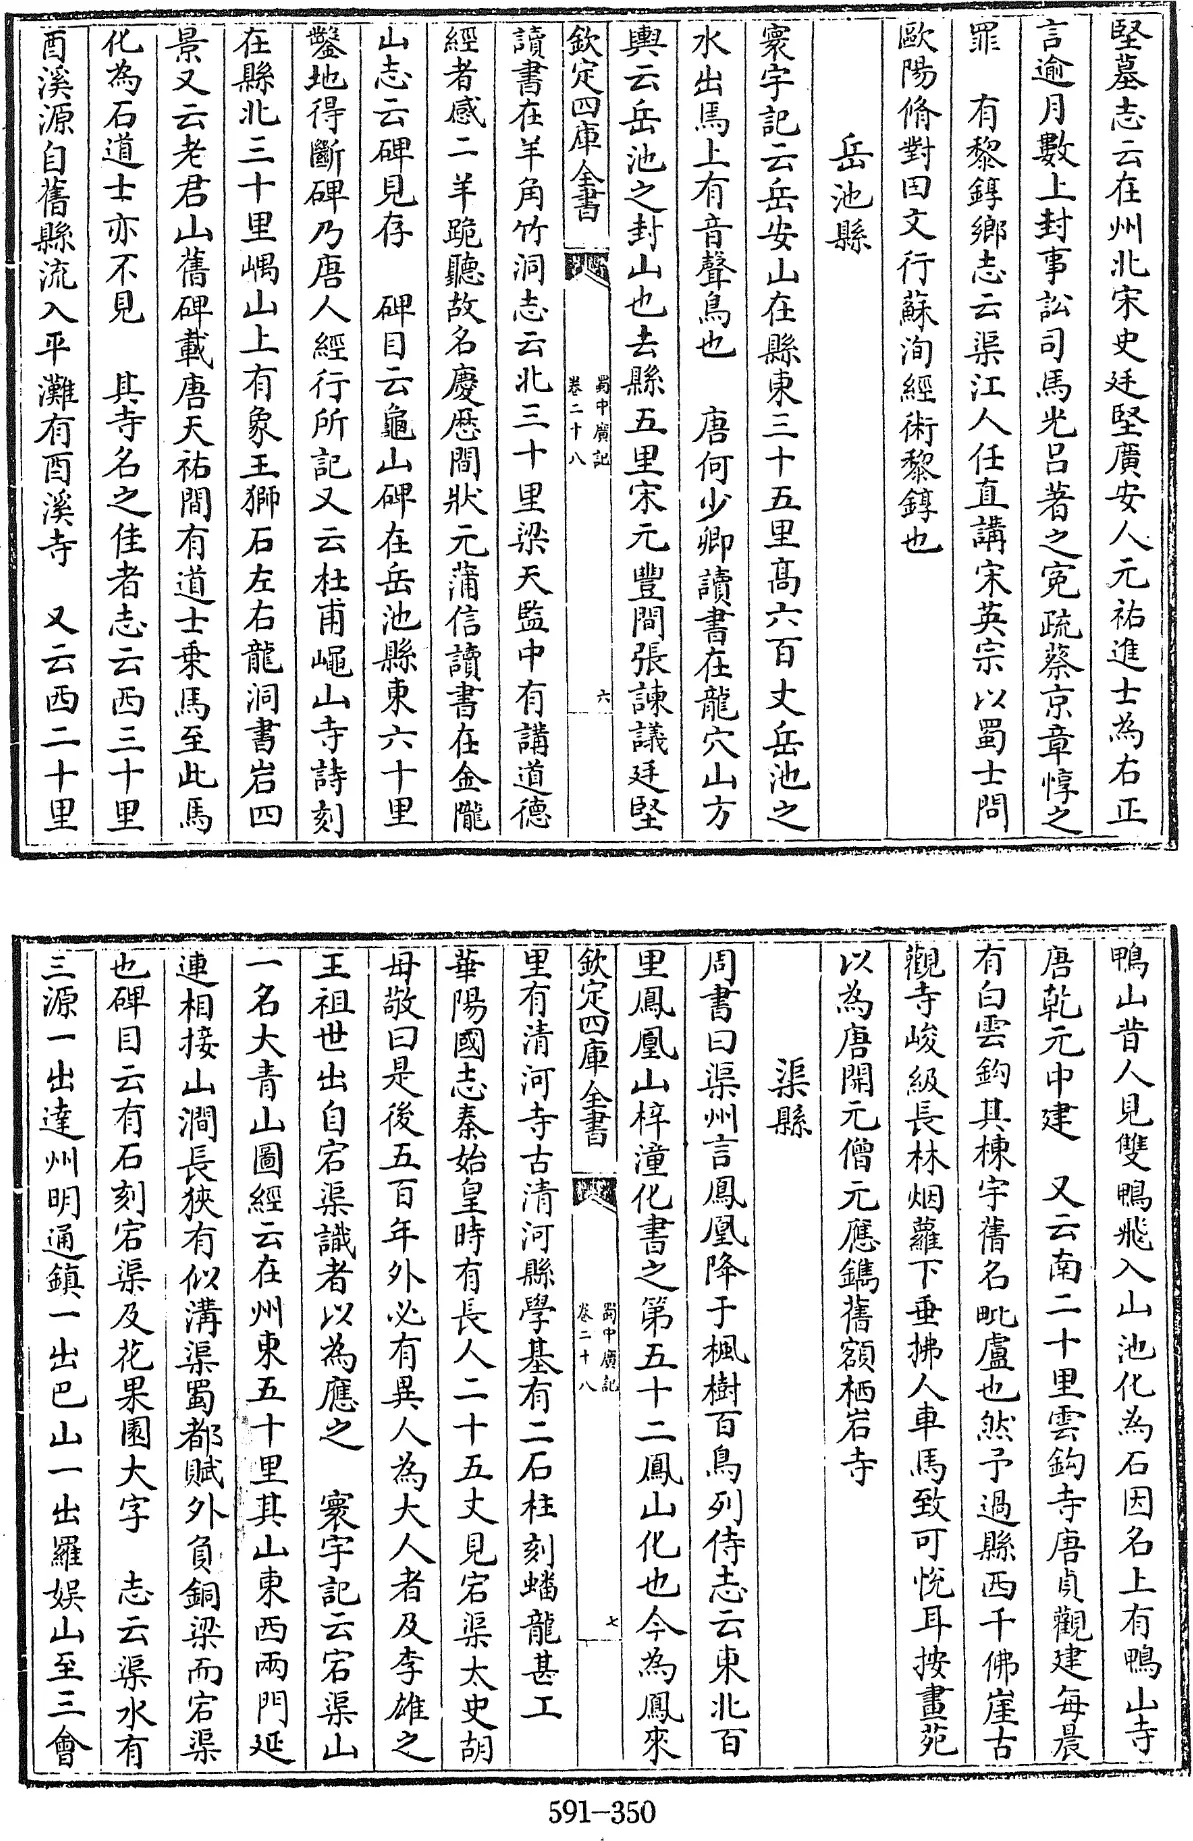 堅墓志云在州北宋史廷堅廣安人元祐進士為右正
言逾月數上封事訟司馬光呂著之寃疏蔡京章惇之
罪　有黎錞鄉志云渠江人任直講宋英宗以蜀士問
歐陽脩對曰文行蘇洵經術黎錞也
岳池縣
寰宇記云岳安山在縣東三十五里高六百丈岳池之
水出焉上有音聲鳥也　唐何少卿讀書在龍穴山方
輿云岳池之封山也去縣五里宋元豐間張諫議廷堅
欽定四庫全書
蜀中廣記
卷二十八
六
讀書在羊角竹洞志云北三十里梁天監中有講道德
經者感二羊跪聽故名慶厯間狀元蒲信讀書在金隴
山志云碑見存　碑目云龜山碑在岳池縣東六十里
鑿地得斷碑乃唐人經行所記又云杜甫嵓山寺詩刻
在縣北三十里嵎山上有象王獅石左右龍洞書岩四
景又云老君山舊碑載唐天祐間有道士乗馬至此馬
化為石道士亦不見　其寺名之佳者志云西三十里
酉溪源自舊縣流入平灘有酉溪寺　又云西二十里
鴨山昔人見雙鴨飛入山池化為石因名上有鴨山寺
唐乾元中建　又云南二十里雲鈎寺唐貞觀建每晨
有白雲鈎其棟宇舊名毗盧也然予過縣西千佛崖古
觀寺峻級長林烟蘿下垂拂人車馬致可悅耳按畫苑
以為唐開元僧元應鐫舊額栖岩寺
渠縣
周書曰渠州言鳳凰降于楓樹百鳥列侍志云東北百
里鳳凰山梓潼化書之第五十二鳳山化也今為鳳來
欽定四庫全書
蜀中廣記
卷二十八
七
里有清河寺古清河縣學基有二石柱刻蟠龍甚工
華陽國志秦始皇時有長人二十五丈見宕渠太史胡
毋敬曰是後五百年外必有異人為大人者及李雄之
王祖世出自宕渠識者以為應之　寰宇記云宕渠山
一名大青山圖經云在州東五十里其山東西兩門延
連相接山澗長狹有似溝渠蜀都賦外負銅梁而宕渠
也碑目云有石刻宕渠及花果園大字　志云渠水有
三源一出達州明通鎮一出巴山一出羅娛山至三會
591-350